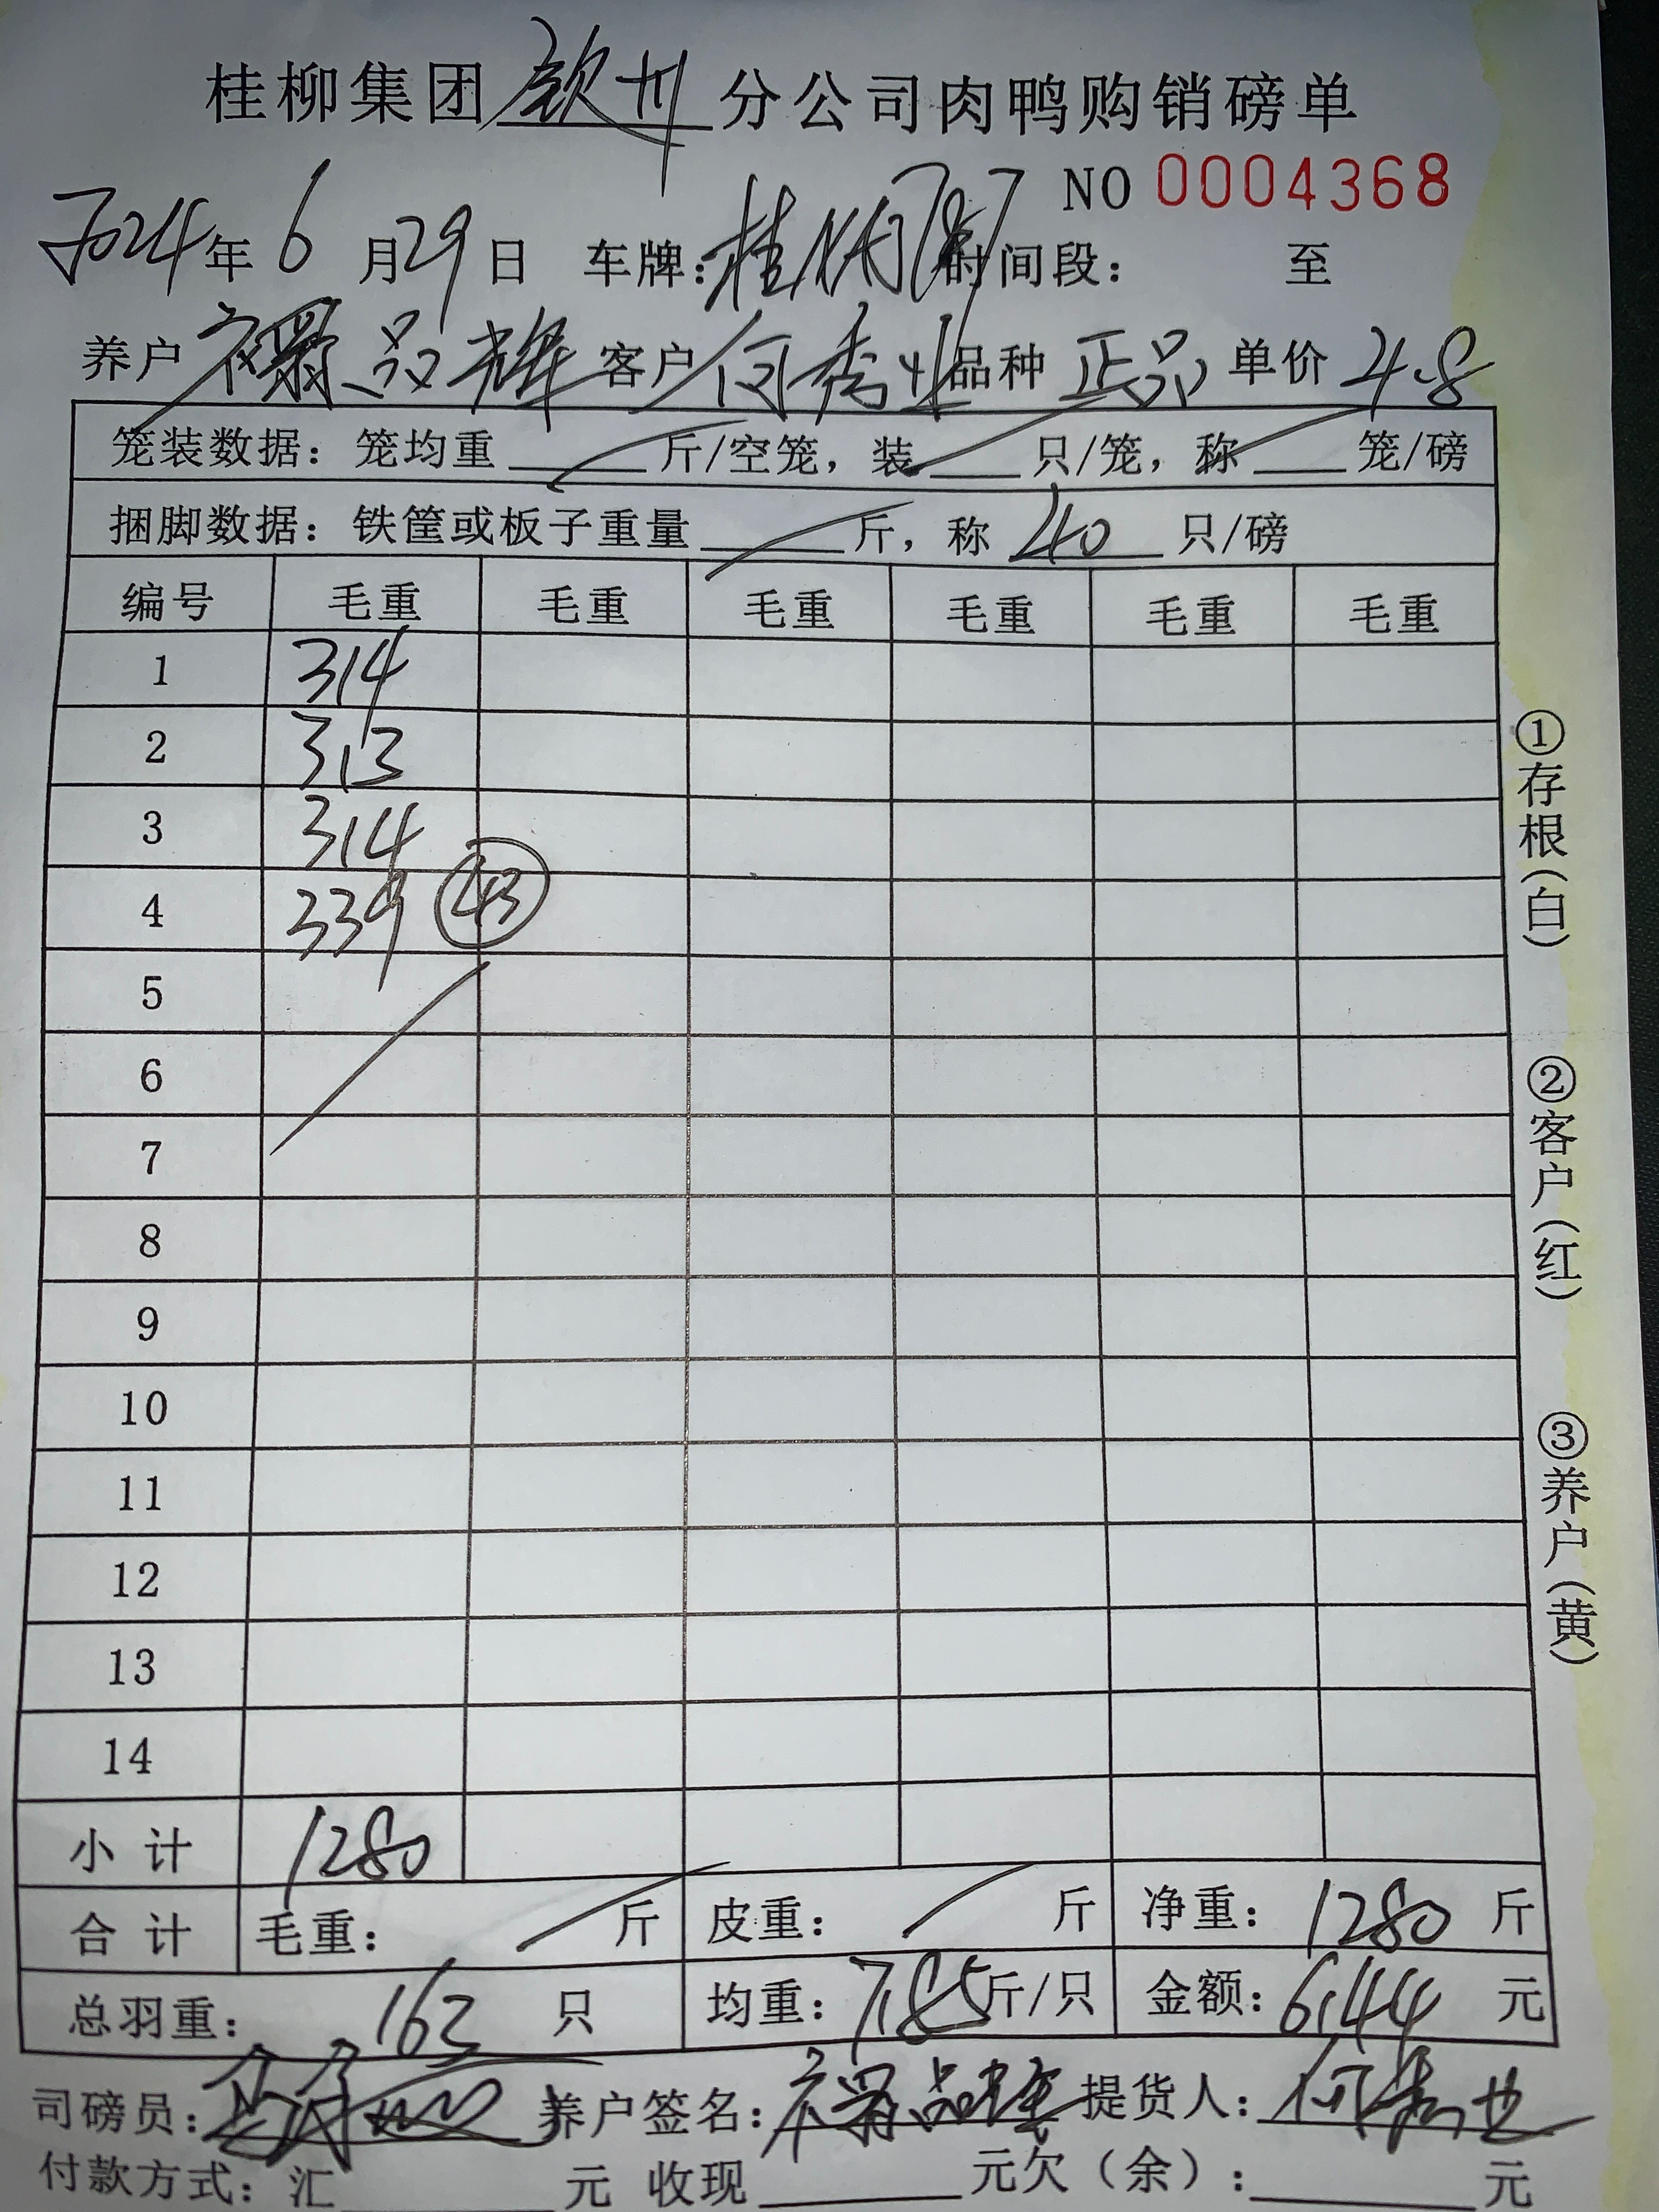 桂柳集团 钦州 分公司肉鸭购销磅单
NO 0004368
2024年 6 月29日 车牌: 时间段: 至
养户 品辉 客户 何秀 品种 正品 单价 4.8
笼装数据: 笼均重 斤/空笼, 装 只/笼, 称 笼/磅
捆脚数据: 铁筐或板子重量 斤, 称 40 只/磅
编号 毛重 毛重 毛重 毛重 毛重 毛重
1 314
2 313
3 314
4 339 43
5
6
7
8
9
10
11
12
13
14
小计 1280
合计 毛重: 斤 皮重: 斤 净重: 1280 斤
总羽重: 163 只 均重: 7.85斤/只 金额: 6144 元
司磅员: 养户签名: 品辉 提货人: 何秀
付款方式: 汇 元 收现 元欠(余): 元
①存根(白)
②客户(红)
③养户(黄)